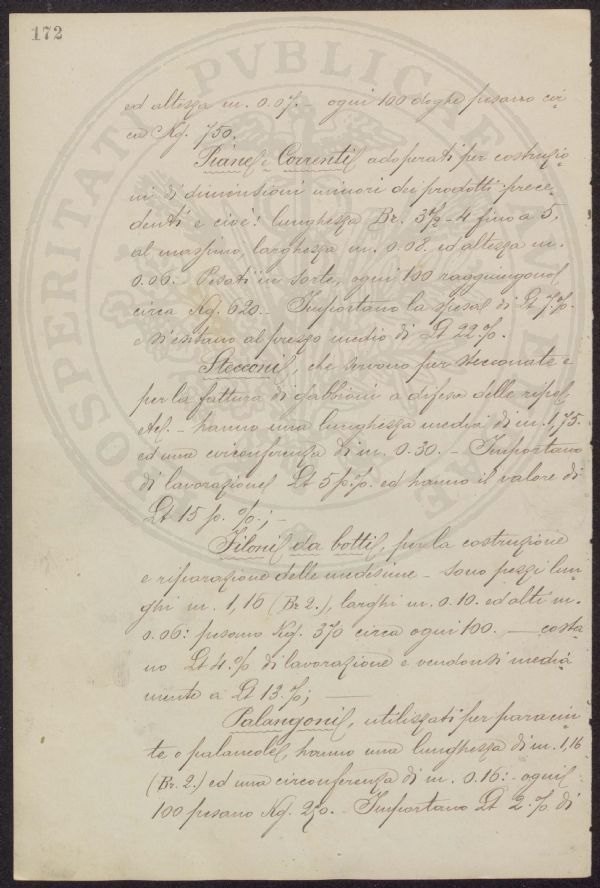 172
ed altezza m. 0.07. - ogni 100 doghe pesano cir-
ca Kg. 750.
Piane e Correnti adoperati per costruzio-
ni di dimensioni minori dei prodotti prece-
denti e cioè: lunghezza Br. 3 1/2 - 4 fino a 5,
al massimo, larghezza m. 0.08. ed altezza m.
0.06. Pesati in sorte, ogni 100 raggiungono
circa Kg. 620. - Importano la spesa di Lt 7 %.
e si esitano al prezzo medio di Lt 22. %.
Stecconi, che servono per steccionate e
per la fattura di gabbioni a difesa delle ripe
etc. - hanno una lunghezza media di m. 1,75.
ed una circonferenza di m. 0.30. - Importano
di lavorazione Lt 5 p. %. ed hanno il valore di
Lt 15 p. %.; -
Filoni da botti, per la costruzione
e riparazione delle medesime - sono pezzi lun-
ghi m. 1,16 (Br 2.), larghi m. 0.10. ed alti m.
0.06: pesano Kg. 370 circa ogni 100. - costa-
no Lt 4. % di lavorazione e vendonsi media-
mente a Lt 13. %; -
Palangoni, utilizzati per paracin-
te o palancole, hanno una lunghezza di m. 1,16
(Br. 2.) ed una circonferenza di m. 0.16: - ogni
100 pesano Kg. 250. - Importano Lt 2. %. di
PROSPERITATI PVBLICAE